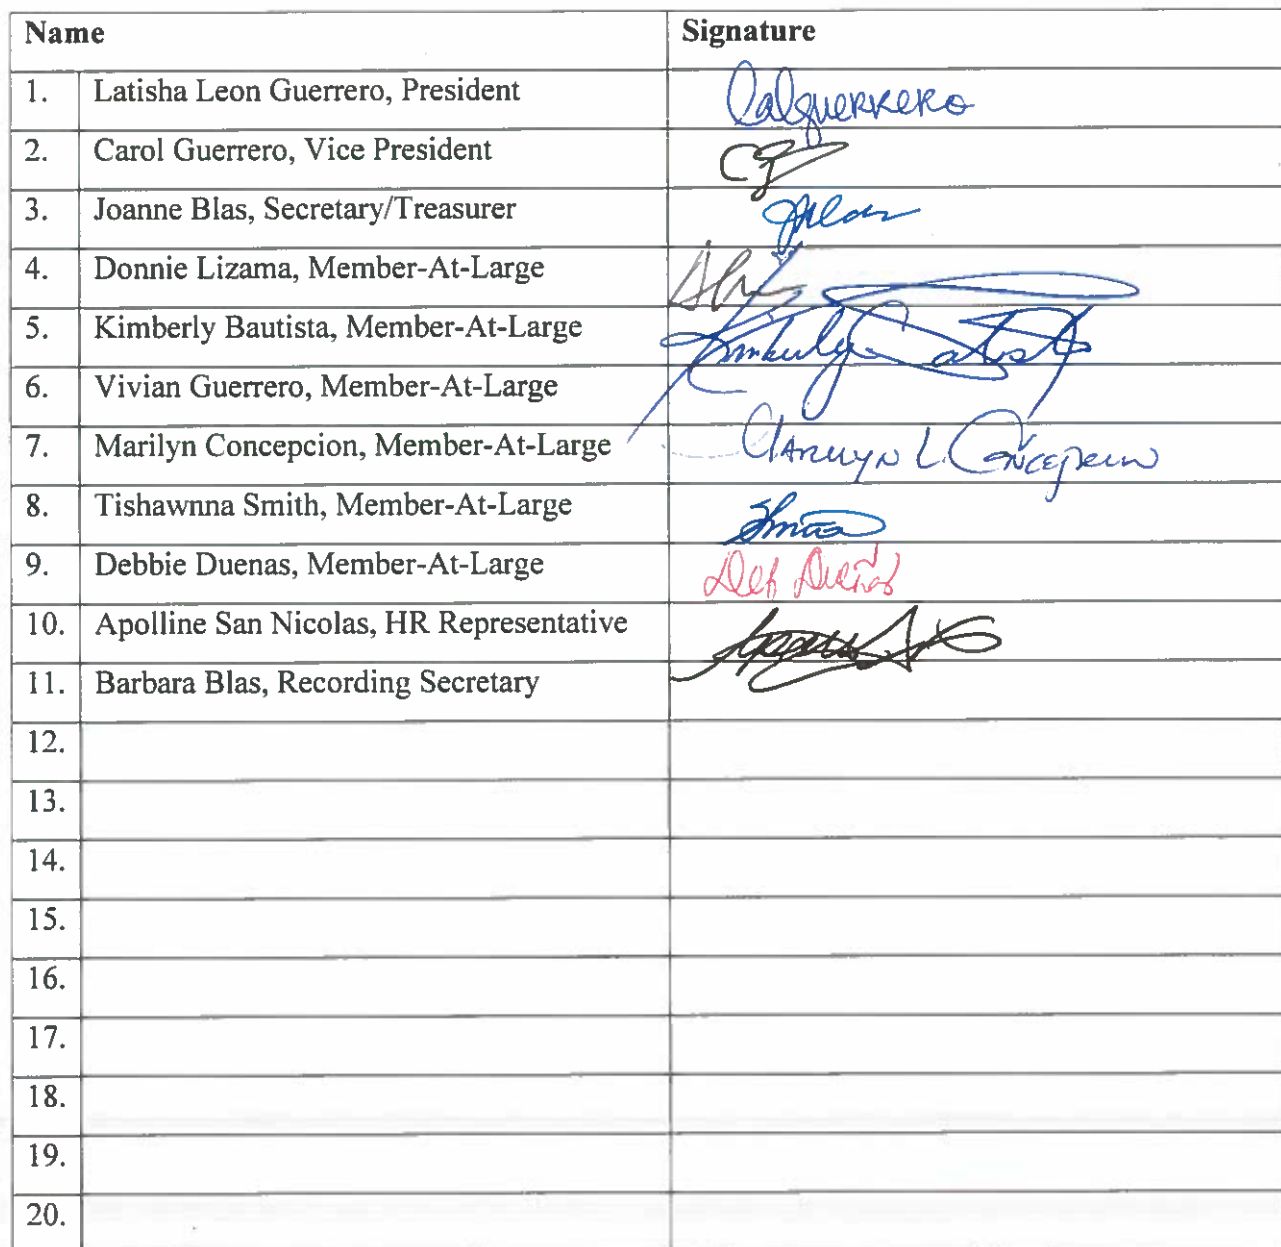 Name Signature
1. Latisha Leon Guerrero, President Lalguerrero
2. Carol Guerrero, Vice President
3. Joanne Blas, Secretary/Treasurer
4. Donnie Lizama, Member-At-Large
5. Kimberly Bautista, Member-At-Large Kimberly Bautista
6. Vivian Guerrero, Member-At-Large
7. Marilyn Concepcion, Member-At-Large Marilyn L. Concepcion
8. Tishawnna Smith, Member-At-Large
9. Debbie Duenas, Member-At-Large Deb Dueñas
10. Apolline San Nicolas, HR Representative
11. Barbara Blas, Recording Secretary
12.
13.
14.
15.
16.
17.
18.
19.
20.